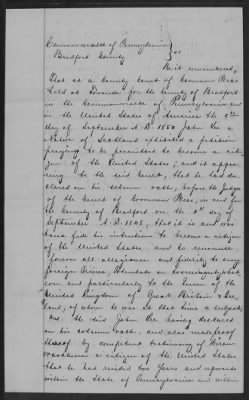 Commonwealth of Pennsylvania }
Bradford County } ss
Be it remembered,
That at a County Court of Common Pleas
held at Towanda for the County of Bradford
in the Commonwealth of Pennsylvania and
in the United States of America the
day of September A.D. 1850 John
Native of Scotland exhibited a petition
praying to be permitted to become a citi-
zen of the United States; and it appear
ing to the said Court, that he had de
clared on his solemn oath, before the Judges
of the Court of Common Pleas, in and for
the County of Bradford on the 3d day of
September A.D. 1848, that it is and was
bona fide his intention to become a citizen
of the United States, and to renounce
forever all allegiance and fidelity to any
foreign Prince, Potentate or Sovereignty what-
ever and particularly to the Queen of the
United Kingdom of Great Britain & Ire
land; of whom he was at that time a subject;
And the said John having declared
on his solemn oath, and also made proof
thereof by competent testimony of Hiram
a citizen of the United States
that he had resided two Years and upwards
within the State of Pennsylvania and within